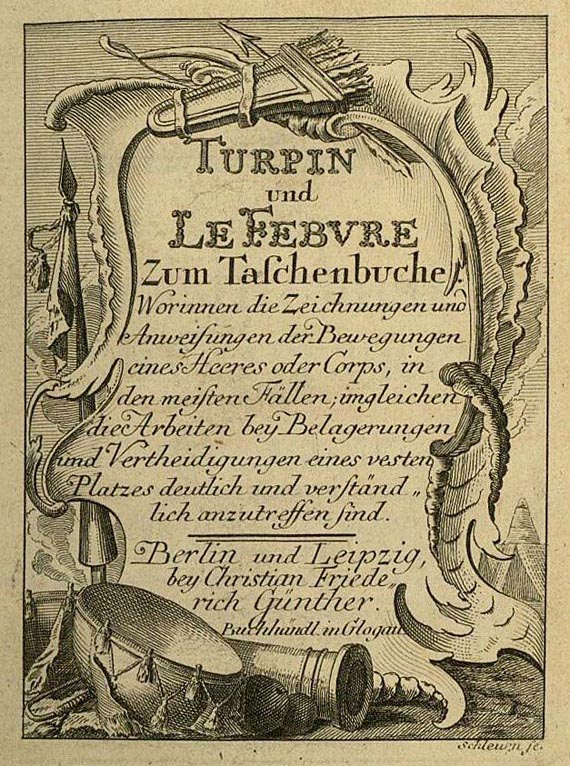 TURPIN
und
LE FEBVRE
Zum Taſchenbuche.
Worinnen die Zeichnungen und
Anweiſungen der Bewegungen
eines Heeres oder Corps, in
den meiſten Fällen; imgleichen
die Arbeiten bey Belagerungen
und Vertheidigungen eines vesten
Platzes deutlich und verſtänd„
lich anzutreffen ſind.
Berlin und Leipzig,
bey Christian Friede„
rich Günther.
Buchhändl. in Glogau.
Schleuen ſc.